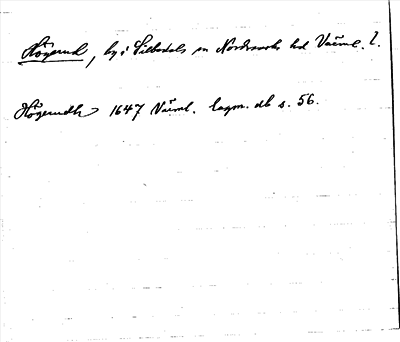 Högerud, by i Silbodals sn Nordmarks hd Värml. l.
Högerudh 1647 Värml. lagm. db s. 56.